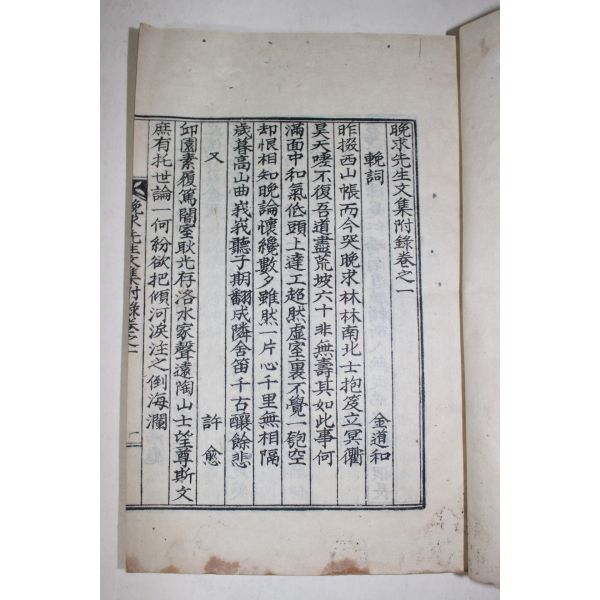 晩求先生文集附錄卷之一
輓詞 金道和
昨掇西山帳而今哭晩求林林南北士抱笈立冥衢
昊天唾不復吾道盡荒坡六十非無壽其如此事何
滿面中和氣低頭上達工超然虛室裏不覺一匏空
却恨相知晩論懷纔數夕雖然一片心千里無相隔
歲暮高山曲峩峩聽子期翻成隣舍笛千古釀餘悲
又 許愈
邱園素履篤闇室耿光存洛水家聲遠陶山士望尊斯文
庶有托世論一何紛欲把傾河淚注之倒海瀾
晩求先生文集附錄卷之一 一